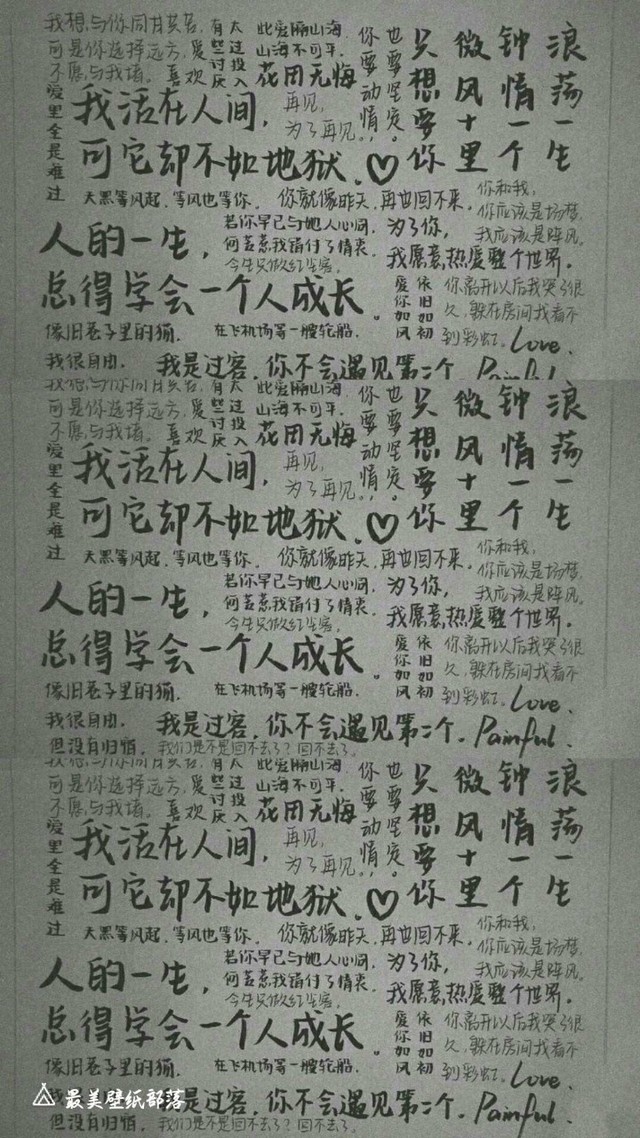 我想,与你同甘共苦,
可是你选择远方,
不愿,与我堵。喜欢
爱里全是难过
有些讨厌
太过投入
此爱隔山海
山海不可平.
花田无悔
你要动情,
也要坚定。
只想要你
微风十里
钟情一个
浪荡一生
我活在人间,
再见,
为了再见,
可它却不如地狱.
天黑等风起,等风也等你.
你就像昨天,再也回不来.
你和我,
你应该是场梦,
我应该是阵风.
人的一生,
若你早已与她人心同,
何苦惹我错付了情衷,
今生只做红尘客.
为了你,
我愿意,热爱整个世界.
总得学会一个人成长.
爱你如风
依旧如初
你离开以后我哭了很
久,躲在房间找看不
到彩虹.
Love.
像旧巷子里的猫.
在飞机场等一艘轮船.
我很自由.
我是过客,你不会遇见第二个.
Painful
我想,与你同甘共苦,
可是你选择远方,
不愿,与我堵。喜欢
爱里全是难过
有些讨厌
太过投入
此爱隔山海
山海不可平.
花田无悔
你要动情,
也要坚定。
只想要你
微风十里
钟情一个
浪荡一生
我活在人间,
再见,
为了再见,
可它却不如地狱.
天黑等风起,等风也等你.
你就像昨天,再也回不来.
你和我,
你应该是场梦,
我应该是阵风.
人的一生,
若你早已与她人心同,
何苦惹我错付了情衷,
今生只做红尘客.
为了你,
我愿意,热爱整个世界.
总得学会一个人成长.
爱你如风
依旧如初
你离开以后我哭了很
久,躲在房间找看不
到彩虹.
Love.
像旧巷子里的猫.
在飞机场等一艘轮船.
我很自由.
我是过客,你不会遇见第二个.
Painful.
但没有归宿.
我们是不是回不去了?回不去了.
可是你选择远方,
不愿,与我堵。喜欢
爱里全是难过
有些讨厌
太过投入
此爱隔山海
山海不可平.
花田无悔
你要动情,
也要坚定。
只想要你
微风十里
钟情一个
浪荡一生
我活在人间,
再见,
为了再见,
可它却不如地狱.
天黑等风起,等风也等你.
你就像昨天,再也回不来.
你和我,
你应该是场梦,
我应该是阵风.
人的一生,
若你早已与她人心同,
何苦惹我错付了情衷,
今生只做红尘客.
为了你,
我愿意,热爱整个世界.
总得学会一个人成长.
爱你如风
依旧如初
你离开以后我哭了很
久,躲在房间找看不
到彩虹.
Love.
像旧巷子里的猫.
在飞机场等一艘轮船.
最美壁纸部落
我是过客,你不会遇见第二个.
Painful.
但没有归宿.
我们是不是回不去了?回不去了.